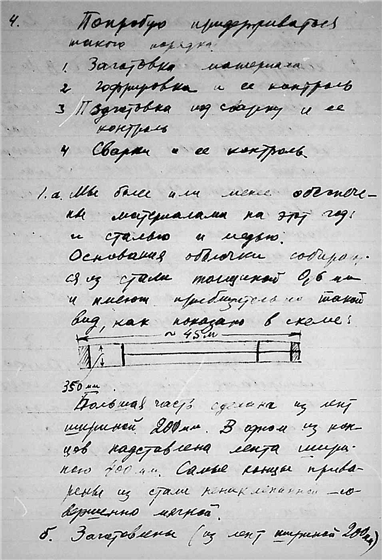 4. Попробую придерживаться
такого порядка
1. Заготовка материала
2 гофрировка и ее контроль
3 Подготовка под сварку и ее
контроль
4 Сварка и ее контроль.
1.а. Мы более или менее обеспече-
ны материалами на этот год:
и сталью и медью.
Основания оболочки собирают-
ся из стали толщиной 0,6 мм
и имеют приблизительно такой
вид, как показано в схеме:
~ 45м
350 мм.
Большая часть сделана из лент
шириной 200мм. В одном из кон-
цов надставлена лента шири-
ною 400 мм. Самые концы прива-
рены из стали со-
вершенно мягкой.
б. Заготовлены (из лент шириной 200мм)